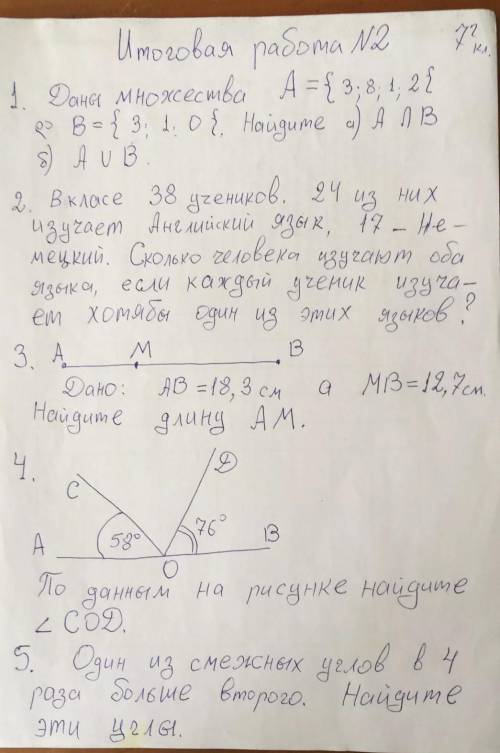 Итоговая работа N2 7² кл.
1. Даны множества A = { 3; 8; 1; 2 {
B = { 3; 1; 0 {. Найдите а) A ∩ B
б) A ∪ B.
2. В класе 38 учеников. 24 из них
изучает Английский язык, 17 – Не-
мецкий. Сколько человека изучают оба
языка, если каждый ученик изуча-
ет хотябы один из этих языков?
3. A M B
Дано: AB = 18,3 см а MB = 12,7 см.
Найдите длину AM.
4. C D
A 58° 76° B
O
По данным на рисунке найдите
∠ COD.
5. Один из смежных углов в 4
раза больше второго. Найдите
эти углы.